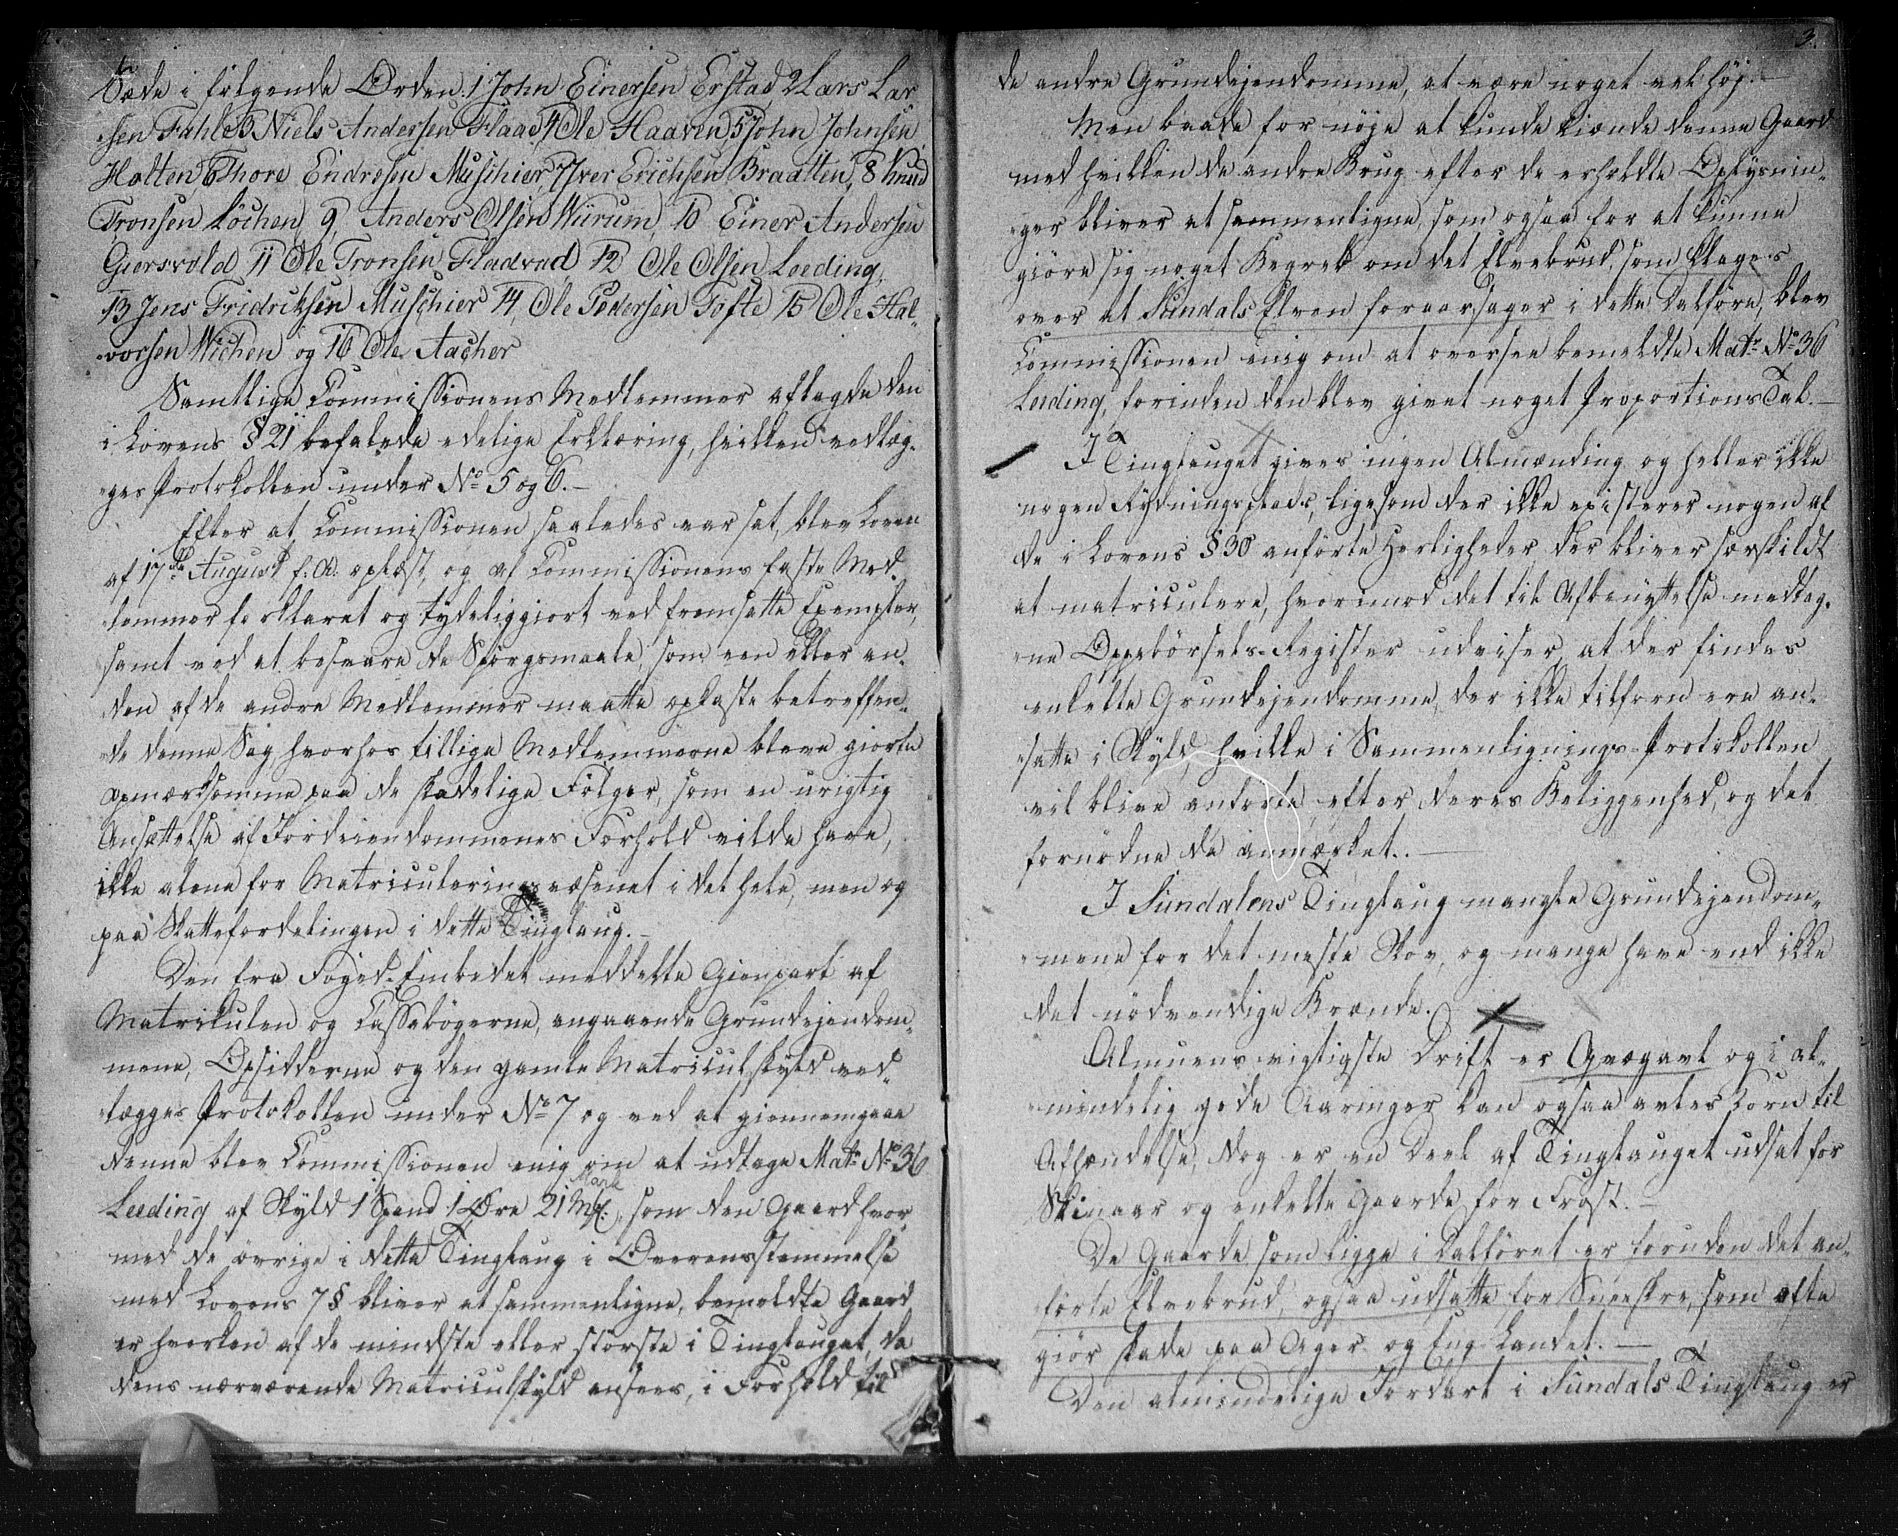 2.
Sæde i følgende Orden. 1 John Einersen Erstad, 2 Lars Lar-
sen Fahle 3 Niels Andersen Flaae, 4 Ole Haaven, 5 John Johnsen
Holten 6 Thore Endresen Muschier, 7 Iver Erichsen Braatten, 8 Knud
Tronsen Løchen, 9, Anders Olsen Wiirum, 10 Einer Andersen
Giersvold 11 Ole Tronsen Fladvad 12 Ole Olsen Leeding,
13 Jens Fridriksen Muschier 14, Ole Pedersen Tofte 15 Ole Hal-
vorsen Wichen og 16 Ole Aacher
Samtlige Commissionens Medlemmer aflagde den
i Lovens § 21 befalede edelige Erklæring, hvilken vedlæg-
ges Protokollen under No 5 og 6. –
Efter at Commissionen saaledes var sat, blev Loven
af 17de August f: A. oplæst, og af Commissionens faste Med-
lemmer forklaret og tydeliggiort ved fremsatte Exempler,
samt ved at besvare de Spørgsmaale, som een eller an-
den af de andre Medlemmer maatte opkaste betreffen-
de denne Sag, hvorhos tillige Medlemmerne bleve giorte
opmærksomme paa de skadelige Følger, som en urigtig
Ansættelse af Jordeiendommenes Forhold vilde have,
ikke alene for Matriculeringsvæsenet i det hele, men og
paa Skattefordelingen i dette Tinglaug. –
Den fra Foged-Embedet meddelte Gienpart af
Matrikulen og Cassebøgerne, angaaende Grundejendom-
mene, Opsidderne og den gamle Matriculskyld ved-
lægges Protokollen under No 7 og ved at giennemgaae
denne blev Commissionen enig om at udtage Matr No 36
Leeding af Skyld 1 Spand 1 Øre 21 Mk:, som den Gaard hvor-
Mark
med de øvrige i dette Tinglaug i Overensstemmelse
med Lovens 7 § bliver at sammenligne, bemeldte Gaard
er hverken af de mindste eller største i Tinglauget, da
dens nærværende Matriculskyld ansees, i Forhold til
3.
de andre Grundejendomme, at være noget vel høj. –
Men baade for nøje at kunde kiænde denne Gaard
med hvilken de andre Brug efter de erholdte Oplysnin-
ger bliver at sammenligne, som ogsaa for at kunne
giøre sig noget Begreb om det Elvebrud, som klages
over at Sundals Elven foraarsager i dette Dalføre, blev
Commissionen enig om at oversee bemeldte Matr No 36
Leeding, forinden den blev givet noget Proportions Tal. –
I Tinglauget gives ingen Almænding og heller ikke
nogen Rydningsplads, ligesom der ikke existerer nogen af
de i Lovens § 30 anførte Herligheder der bliver særskildt
at matriculere, hvorimod det til Afbenyttelse medtag-
ne Oppebørsels-Register udviser, at der findes
enkelte Grundejendomme, der ikke tilforn ere an-
satte i Skyld, hvilke i Sammenlignings Protokollen
vil blive anførte, efter deres Beliggenhed, og det
fornødne da anmærket. –
I Sundalens Tinglaug mangle Grundejendom-
mene for det meste Skov, og mange have end ikke
det nødvendige Brænde.
Almuens vigtigste Drift er Qvægavl og i al-
mindelig gode Aaringer kan ogsaa avles Korn til
Afhændelse, dog er en Deel af Tinglauget udsat for
Skinaar og enkelte Gaarde for Frost. –
De Gaarde som ligge i Dalføret er foruden det an-
førte Elvebrud, ogsaa udsatte for Sneeskre, som ofte
giør skade paa Ager og Eng-Landet. –
Den almindelige Jordart i Sundals Tinglaug er